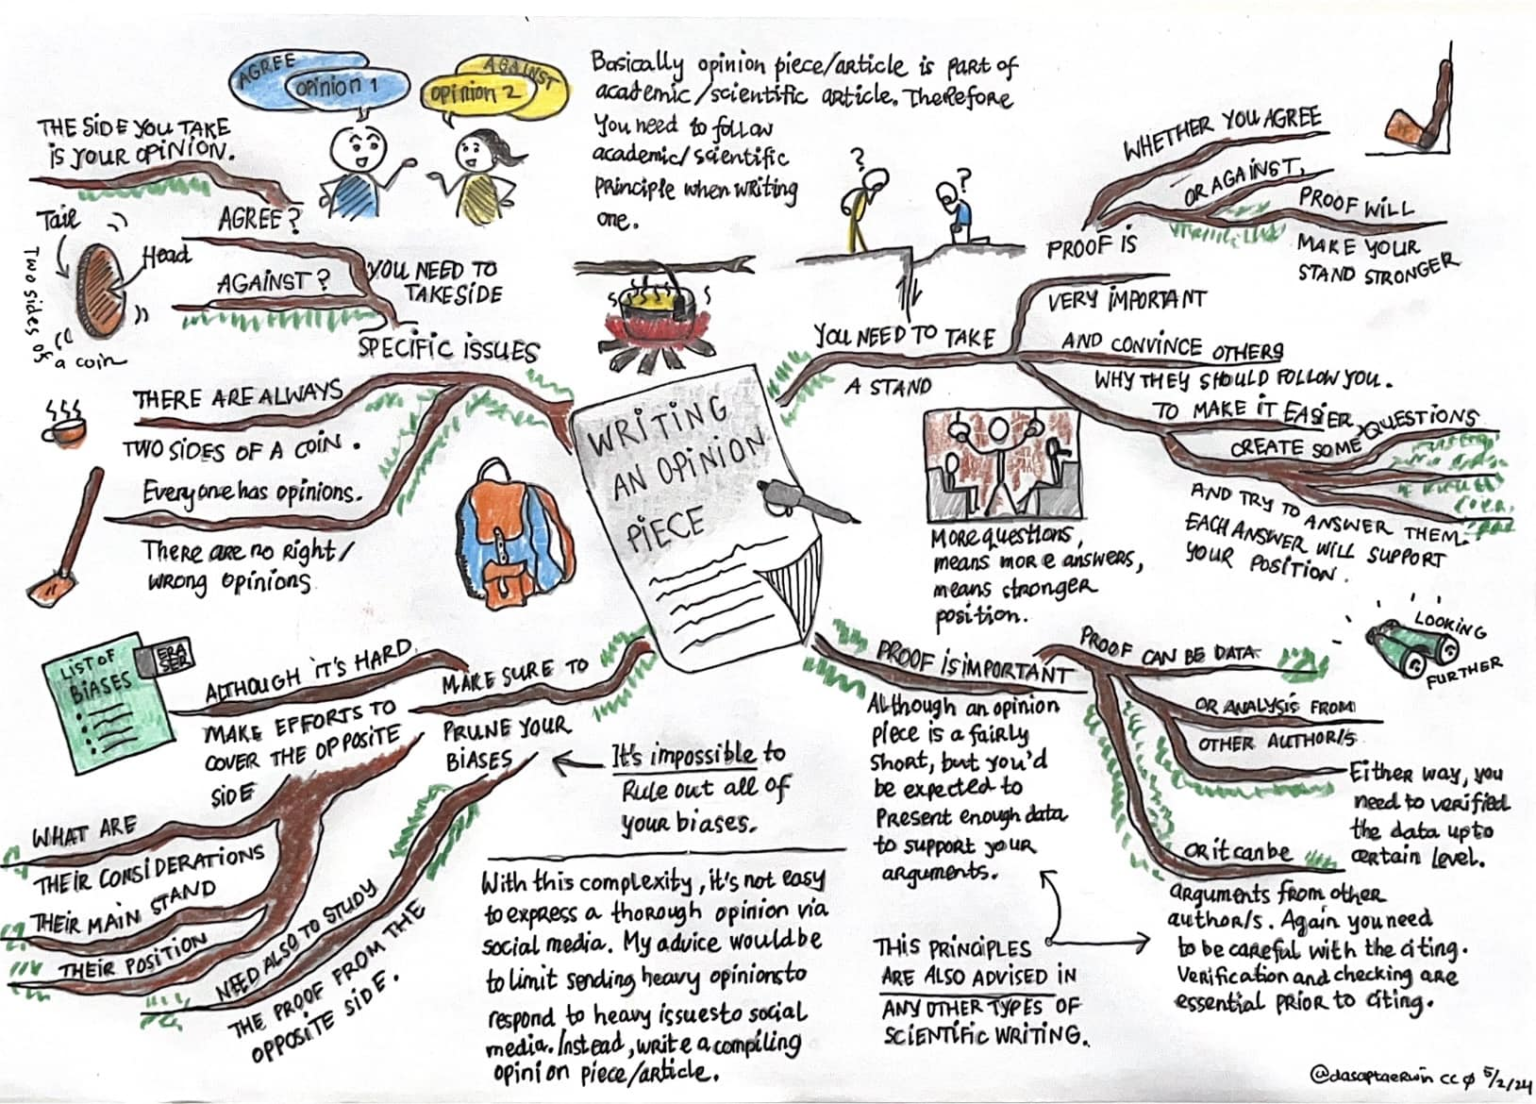 AGREE
opinion 1
AGAINST
opinion 2
THE SIDE YOU TAKE
is YOUR OPINION.
Tail
Head
Two sides of
a coin
AGREE?
AGAINST?
YOU NEED TO
TAKE SIDE
SPECIFIC ISSUES
THERE ARE ALWAYS
TWO SIDES OF A COIN.
Everyone has opinions.
There are no Right/
wrong opinions.
Basically opinion piece/article is part of
academic/scientific article. Therefore
You need to follow
academic/scientific
principle when writing
one.
?
?
WRITING
AN OPINION
PIECE
YOU NEED TO TAKE
A STAND
PROOF IS
VERY IMPORTANT
WHETHER YOU AGREE
OR AGAINST,
PROOF WILL
MAKE YOUR
STAND STRONGER
AND CONVINCE OTHERS
WHY THEY SHOULD FOLLOW YOU.
TO MAKE IT EASIER
CREATE SOME QUESTIONS
AND TRY TO ANSWER THEM.
EACH ANSWER WILL SUPPORT
YOUR POSITION.
More questions,
means more answers,
means stronger
position.
LIST OF
BIASES
ERA
SER
MAKE SURE TO
PRUNE YOUR
BIASES
ALTHOUGH IT'S HARD
MAKE EFFORTS TO
COVER THE OPPOSITE
SIDE
WHAT ARE
THEIR CONSIDERATIONS
THEIR MAIN STAND
THEIR POSITION
NEED ALSO TO STUDY
THE PROOF FROM THE
OPPOSITE SIDE.
It's impossible to
Rule out all of
your biases.
With this complexity, it's not easy
to express a thorough opinion via
social media. My advice would be
to limit sending heavy opinions to
respond to heavy issues to social
media. Instead, write a compiling
opinion piece/article.
PROOF IS IMPORTANT
Although an opinion
piece is a fairly
short, but you'd
be expected to
Present enough data
to support your
arguments.
THIS PRINCIPLES
ARE ALSO ADVISED IN
ANY OTHER TYPES OF
SCIENTIFIC WRITING.
PROOF CAN BE DATA
OR ANALYSIS FROM
OTHER AUTHOR/S
Either way, you
need to verified
the data up to
certain level.
OR it can be
arguments from other
author/s. Again you need
to be careful with the citing.
Verification and checking are
essential prior to citing.
LOOKING
FURTHER
@dasaptaerwin CC ø 5/2/24